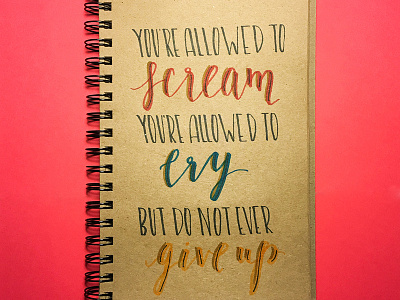 YOU'RE ALLOWED TO
scream
YOU'RE ALLOWED TO
cry
BUT DO NOT EVER
give up